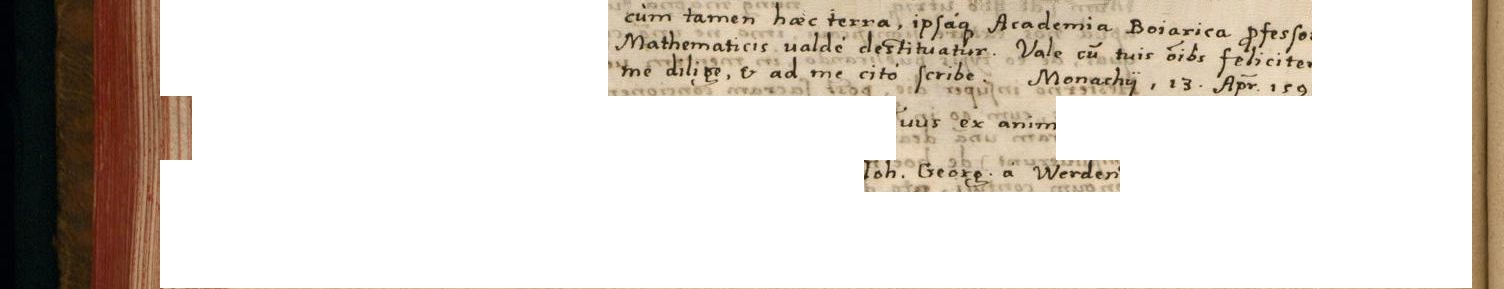 cùm tamen hæc terra, ipsáq́ꝫ Academia Boiarica ꝓfesso
Mathematicis ualdè destituatur. Vale cũ tuis õibs feliciter
me dilige, & ad me citò scribe. Monachij, 13. Apr̃. 159
uus ex anim
Ioh. Georg. à Werden